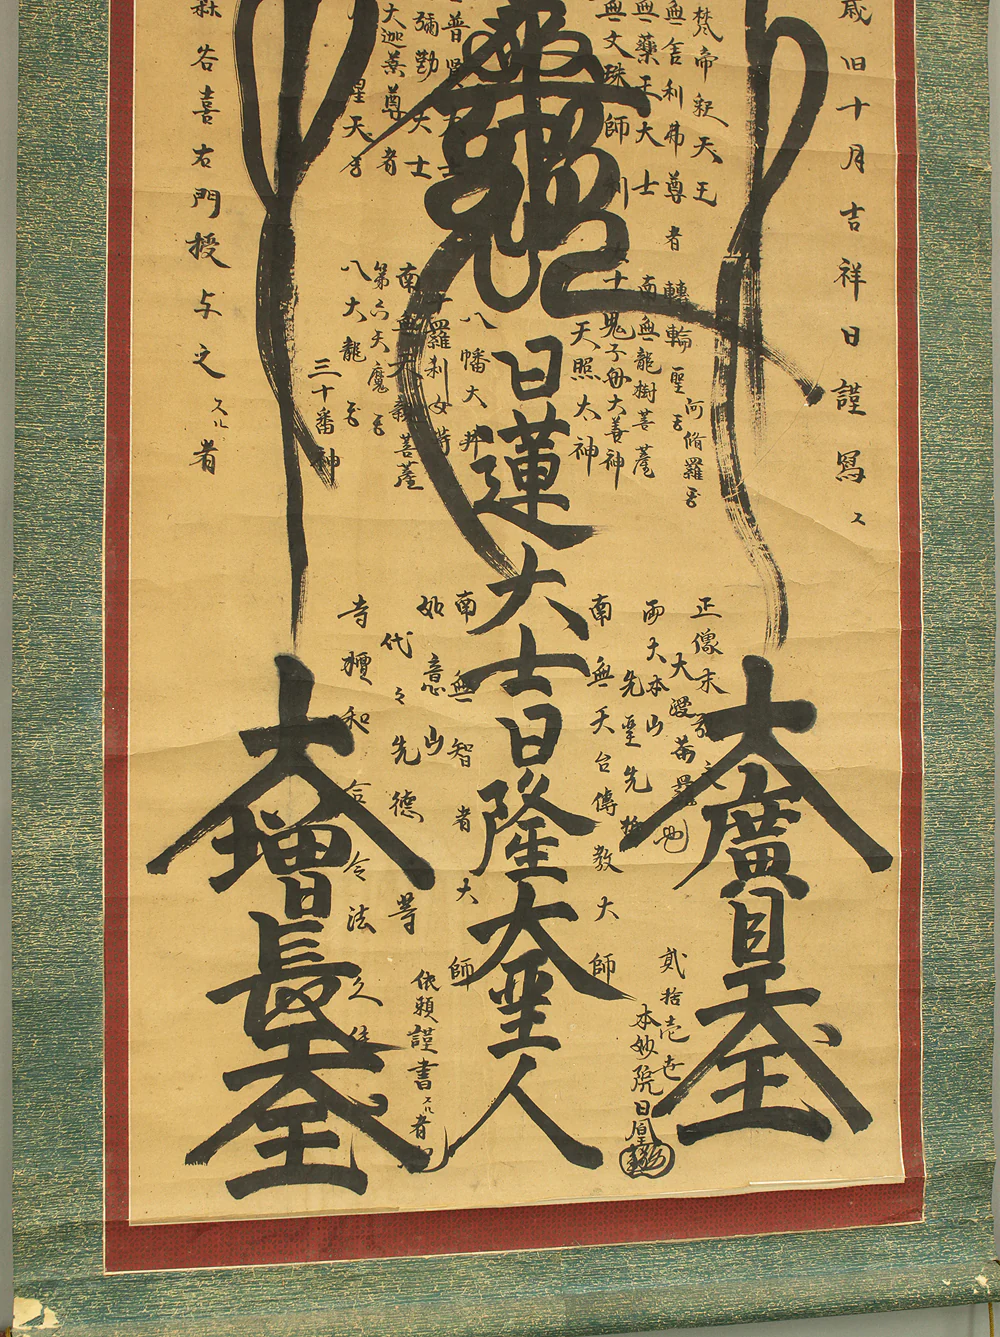 歳旧十月吉祥日謹写ス
梵帝釈天王
無舎利弗尊者
無薬王大士
無文殊師利
普賢大士
弥勒大士
大迦葉尊者
星天子
谷喜右門授与之スル者
阿脩羅王
轉輪聖王
南無龍樹菩薩
十鬼子母大善神
天照大神
日蓮大士日隆大聖人
八幡大井
十羅刹女等
南無天親菩薩
第六天魔王
八大龍王
三十番神
大廣目天王
正像末
大漫荼羅也
両大本山
先聖先
南無天台傳教大師
南無智者大師
如意山
代々先德等
寺檀和合令法久住
大増長天王
貳拾壱世
本妙院日
依頼謹書スル者也